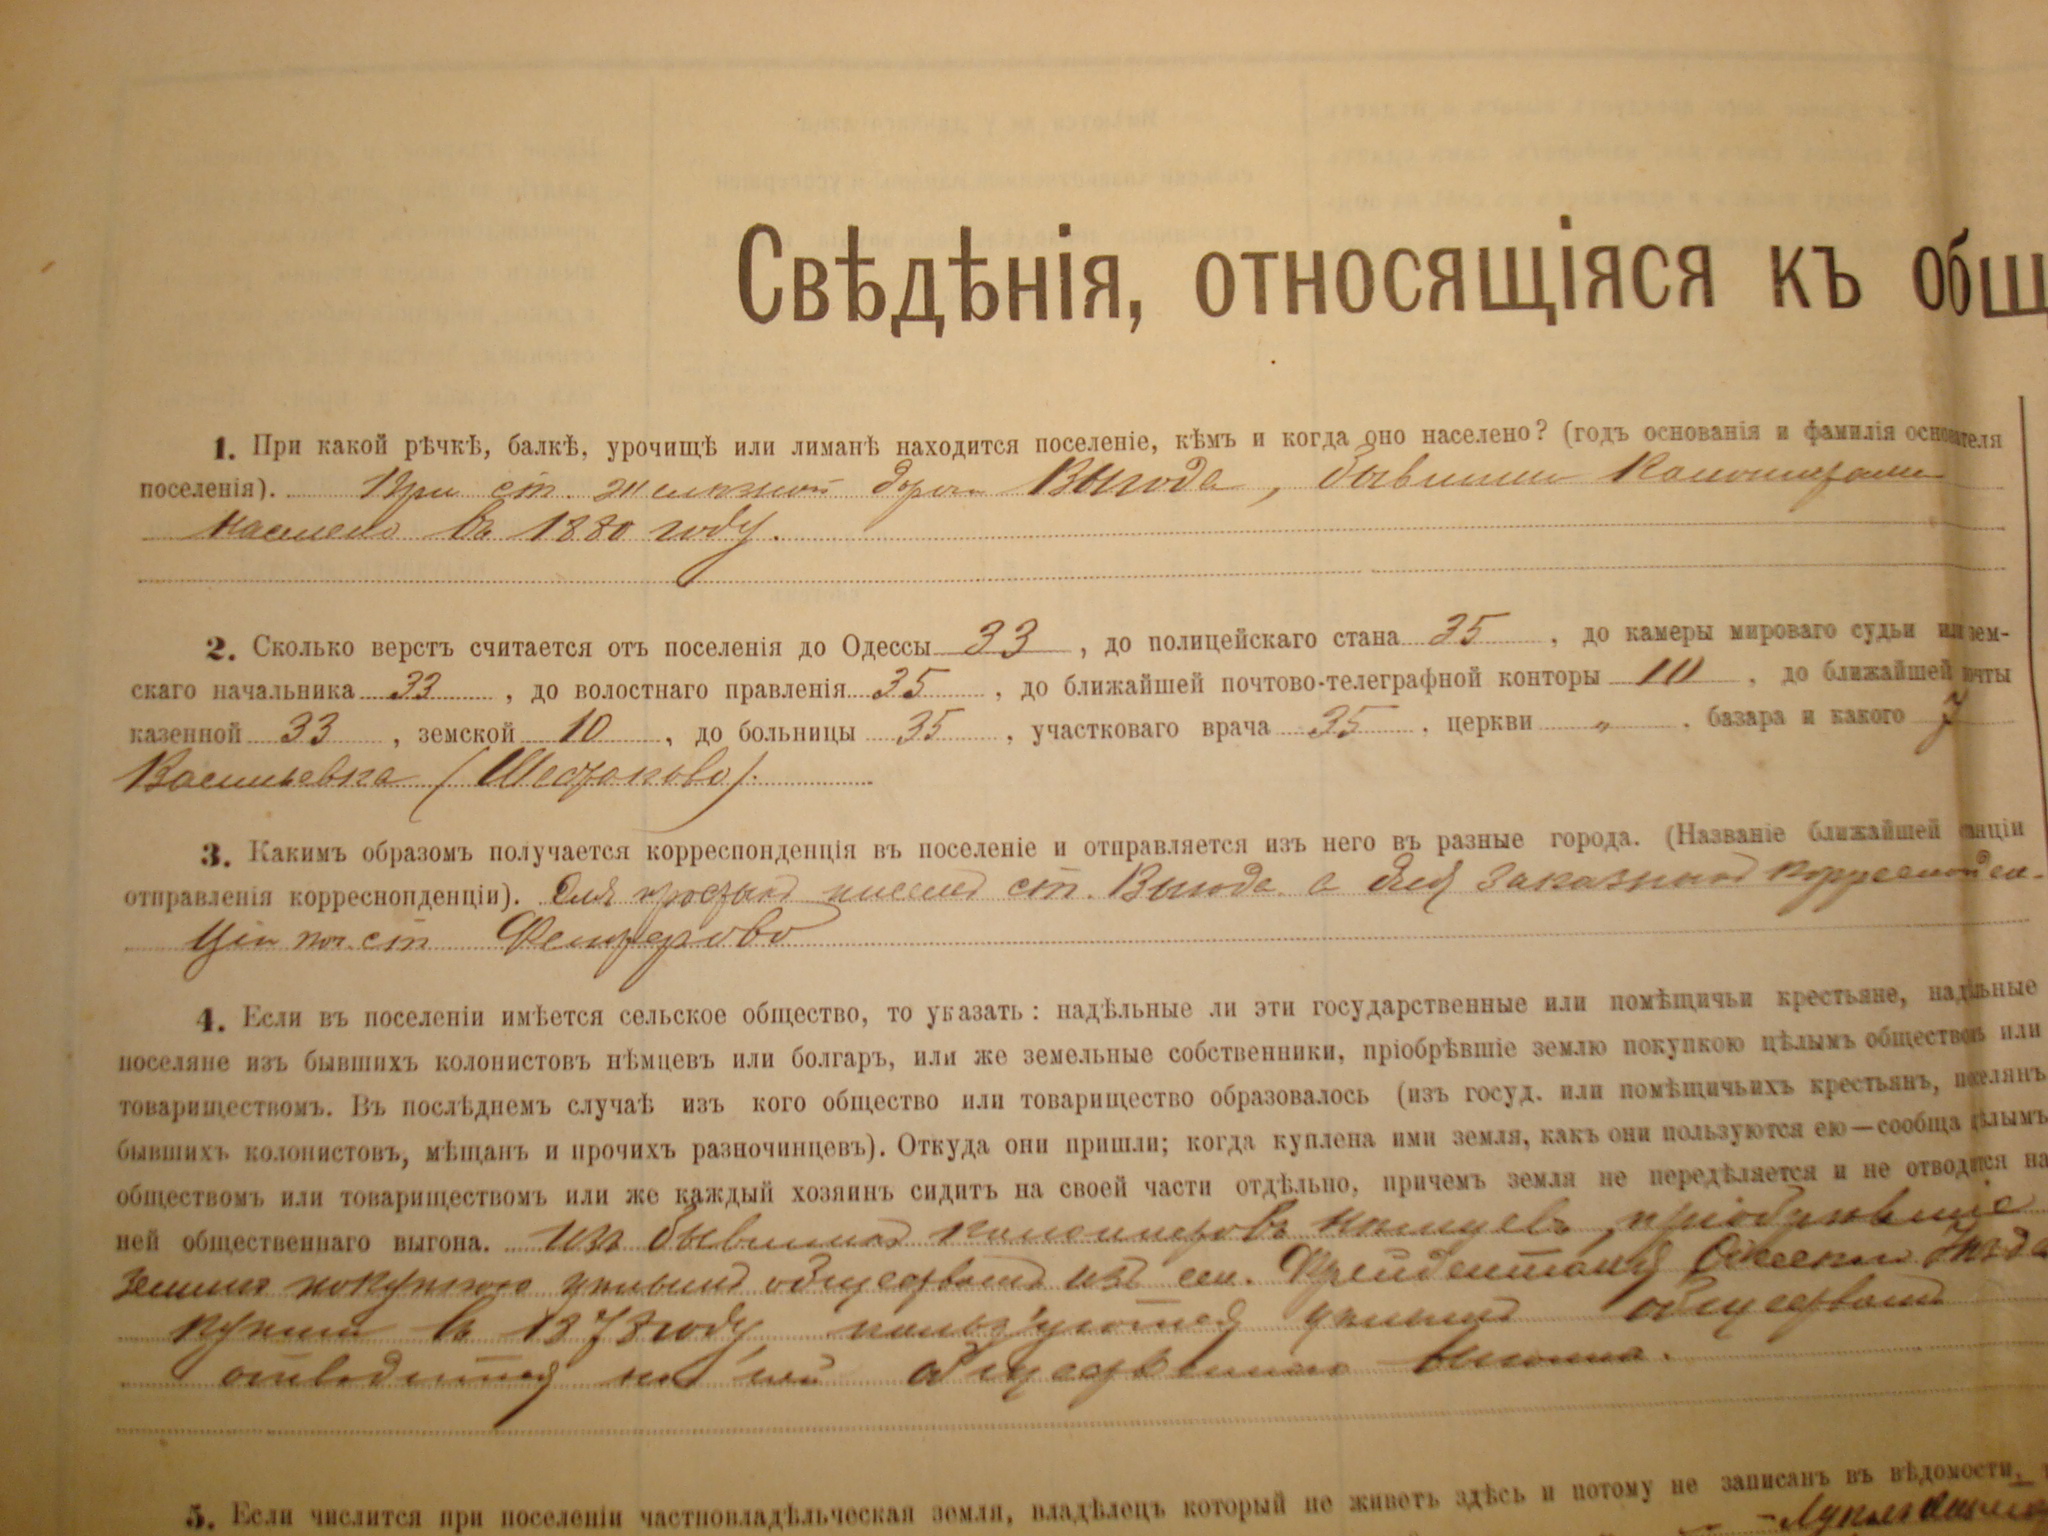 Свѣдѣнія, относящіяся къ общ
1. При какой рѣчкѣ, балкѣ, урочищѣ или лиманѣ находится поселеніе, кѣмъ и когда оно населено? (годъ основанія и фамилія основателя
поселенія). При ст. желѣзной дороги Выгода, бывшими колонистами
населено въ 1880 году.
2. Сколько верстъ считается отъ поселенія до Одессы 33, до полицейскаго стана 35, до камеры мироваго судьи или зем-
скаго начальника 33, до волостнаго правленія 35, до ближайшей почтово-телеграфной конторы 10, до ближайшей почты
казенной 33, земской 10, до больницы 35, участковаго врача 35, церкви „, базара и какого 7
Васильевка (Шестаково).
3. Какимъ образомъ получается корреспонденція въ поселеніе и отправляется изъ него въ разные города. (Названіе ближайшей станціи
отправленія корреснопденціи). Для простыхъ писемъ ст. Выгода а для заказной корреспонден-
ціи поч. ст
4. Если въ поселеніи имѣется сельское общество, то указать: надѣльные ли эти государственные или помѣщичьи крестьяне, надѣльные
поселяне изъ бывшихъ колонистовъ нѣмцевъ или болгаръ, или же земельные собственники, пріобрѣвшіе землю покупкою цѣлымъ обществомъ или
товариществомъ. Въ послѣднемъ случаѣ изъ кого общество или товарищество образовалось (изъ госуд. или помѣщичьихъ крестьянъ, поселянъ
бывшихъ колонистовъ, мѣщанъ и прочихъ разночинцевъ). Откуда они пришли; когда куплена ими земля, какъ они пользуются ею—сообща цѣлымъ
обществомъ или товариществомъ или же каждый хозяинъ сидитъ на своей части отдѣльно, причемъ земля не передѣляется и не отводится на
ней общественнаго выгона. Изъ бывшихъ колонистовъ нѣмцевъ, пріобрѣвшіе
землю покупкою цѣлымъ обществомъ изъ сел. Фрейденталя Одесскаго уѣзда
въ 1878 году, пользуются цѣлымъ обществомъ
отводится на ней общественнаго выгона.
5. Если числится при поселеніи частновладѣльческая земля, владѣлецъ который не живетъ здѣсь и потому не записанъ въ вѣдомости,